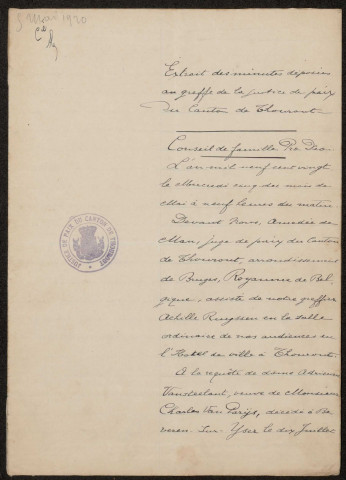 5 Mai 1920
Extrait des minutes déposées
au greffe de la justice de paix
du Canton de Thourout
Conseil de famille Pro Deo
L'an mil neuf cent vingt
le Mercredi cinq du mois de
Mai à neuf heures du matin
Devant Nous, Amedée de
Man, juge de paix du Canton
de Thourout, arrondissement
de Bruges, Royaume de Bel
gique, assisté de notre greffier
Achille in la salle
ordinaire de nos audiences en
l'Hotel de ville à Thourout.
A la requête de dame Adrienne
Vanstaelant, veuve de Monsieur
Charles Van Parijs, décédé à Be
veren sur Yser le dix Juillet
JUSTICE DE PAIX DU CANTON DE THOUROUT